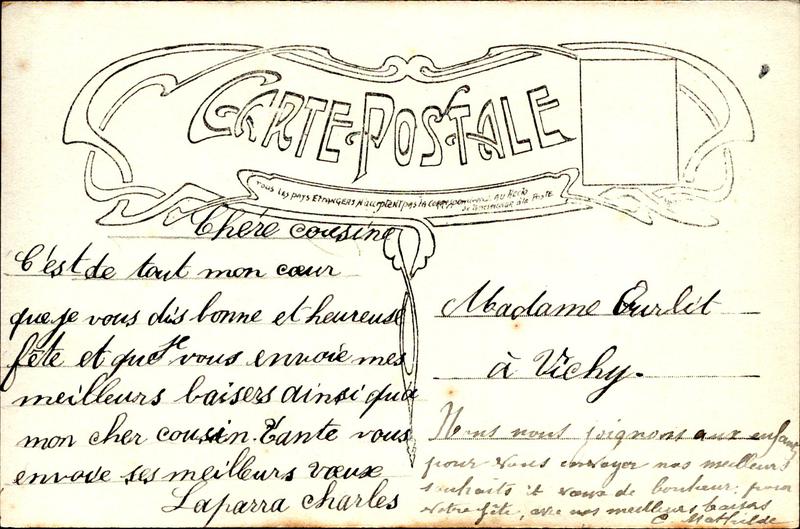 CARTE POSTALE
TOUS LES PAYS ETRANGERS N'ACCEPTENT PAS LA CORRESPONDANCE AU RECTO
Chére cousine
C'est de tout mon cœur
que je vous dis bonne et heureuse
fête et que je vous envoie mes
meilleurs baisers ainsi qu'a
mon cher cousin. Tante vous
envoie ses meilleurs vœux
Laparra Charles
Madame Ourlet
à Vichy.
Nous nous joignons aux enfants
pour vous envoyer nos meilleurs
souhaits et vœux de bonheur, pour
votre fête, avec nos meilleurs baisers
C. Mathilde